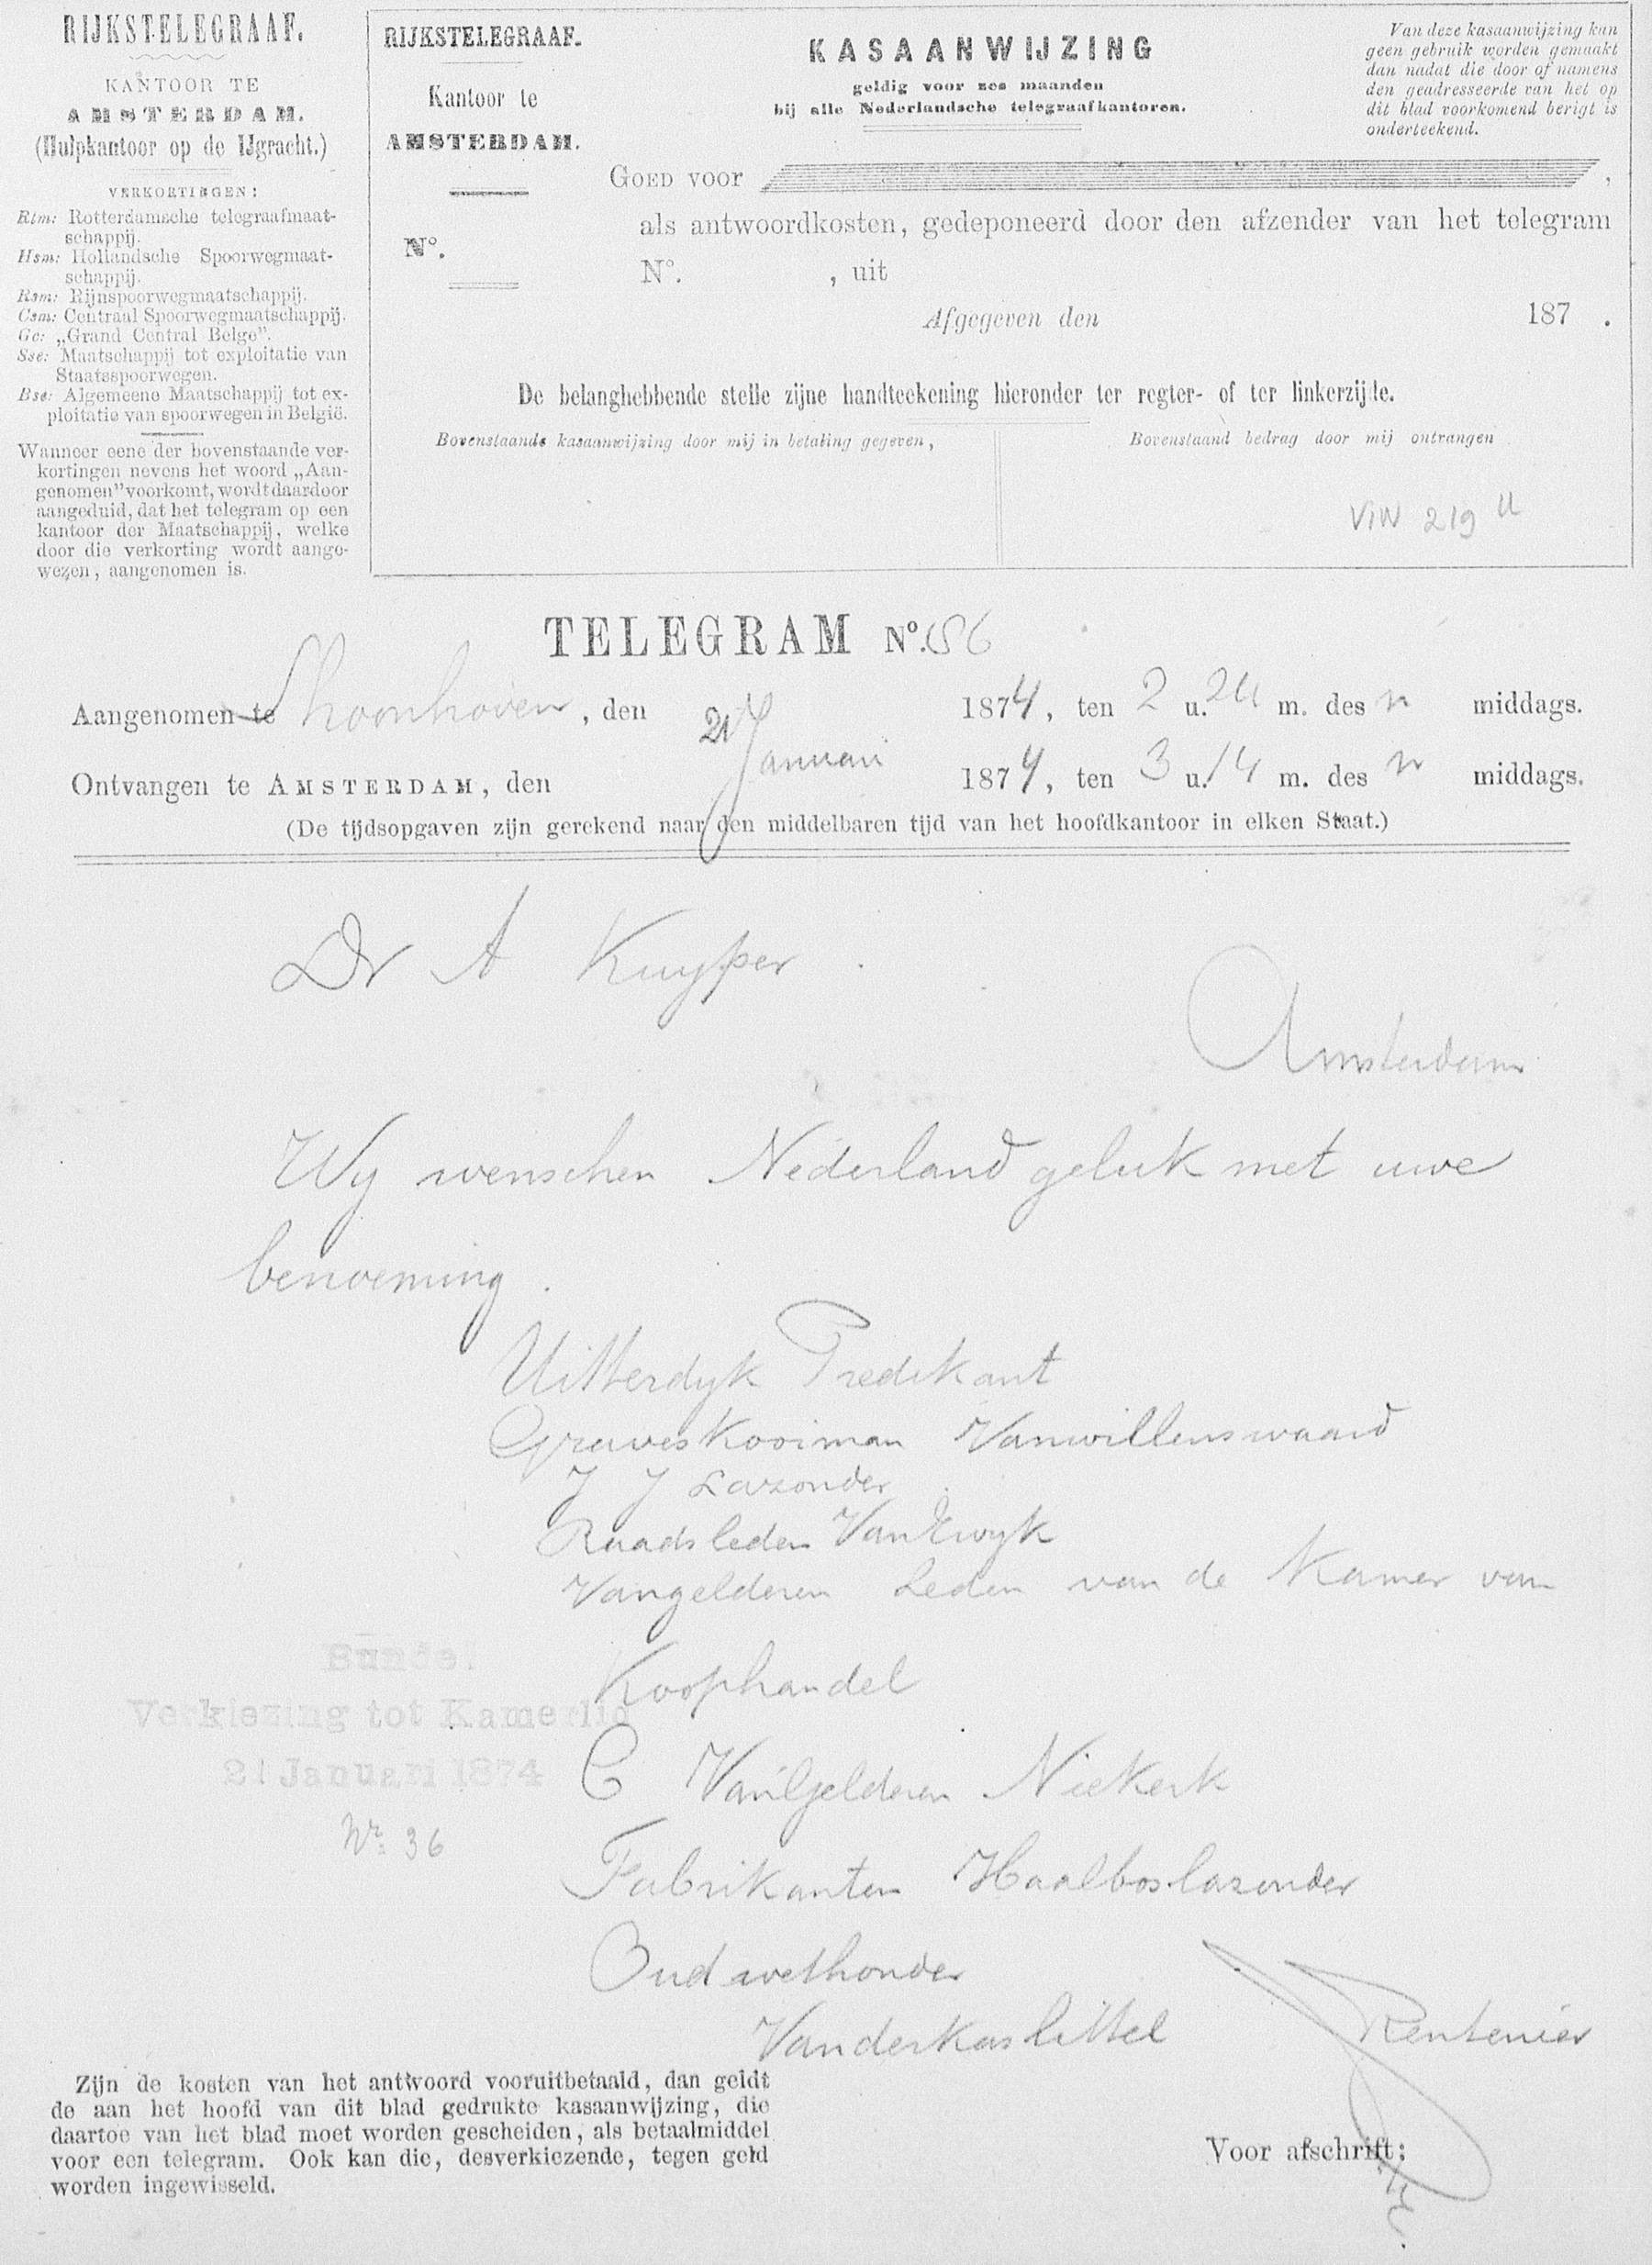 RIJKSTELEGRAAF.
KANTOOR TE
AMSTERDAM.
(Hulpkantoor op de IJgracht.)
VERKORTINGEN:
Rtm: Rotterdamsche telegraafmaat-
schappij.
Hsm: Hollandsche Spoorwegmaat-
schappij.
Rsm: Rijnspoorwegmaatschappij.
Csm: Centraal Spoorwegmaatschappij.
Gc: „Grand Central Belge”.
Sse: Maatschappij tot exploitatie van
Staatsspoorwegen.
Bse: Algemeene Maatschappij tot ex-
ploitatie van spoorwegen in België.
Wanneer eene der bovenstaande ver-
kortingen nevens het woord „Aan-
genomen” voorkomt, wordt daardoor
aangeduid, dat het telegram op een
kantoor der Maatschappij, welke
door die verkorting wordt aange-
wezen, aangenomen is.
RIJKSTELEGRAAF.
Kantoor te
AMSTERDAM.
N°.
KASAANWIJZING
geldig voor zes maanden
bij alle Nederlandsche telegraafkantoren.
Van deze kasaanwijzing kan
geen gebruik worden gemaakt
dan nadat die door of namens
den geadresseerde van het op
dit blad voorkomend berigt is
onderteekend.
GOED voor ,
als antwoordkosten, gedeponeerd door den afzender van het telegram
N°. , uit
Afgegeven den 187 .
De belanghebbende stelle zijne handteekening hieronder ter regter- of ter linkerzijde.
Bovenstaande kasaanwijzing door mij in betaling gegeven,
Bovenstaand bedrag door mij ontvangen
VIW 219 U
TELEGRAM N°. 186
Aangenomen te Schoonhoven, den 21 Januari 1874, ten 2 u. 24 m. des n middags.
Ontvangen te AMSTERDAM, den 1874, ten 3 u. 14 m. des n middags.
(De tijdsopgaven zijn gerekend naar den middelbaren tijd van het hoofdkantoor in elken Staat.)
Dr A Kuyper
Amsterdam
Wy wenschen Nederland geluk met uwe
benoeming.
Uitterdyk Predikant
Greuves Kooiman Vanwillenswaard
J J Lazonder
Raadsleden VanEwyk
Vangelderen Leden van de Kamer van
Koophandel
C VanGelderen Niekerk
Fabrikanten Haalboslazonder
Oud wethouder
Vanderkaslittel Rentenier
Bundel
Verkiezing tot Kamerlid
21 Januari 1874
Nr. 36
Zijn de kosten van het antwoord vooruitbetaald, dan geldt
de aan het hoofd van dit blad gedrukte kasaanwijzing, die
daartoe van het blad moet worden gescheiden, als betaalmiddel
voor een telegram. Ook kan die, desverkiezende, tegen geld
worden ingewisseld.
Voor afschrift: